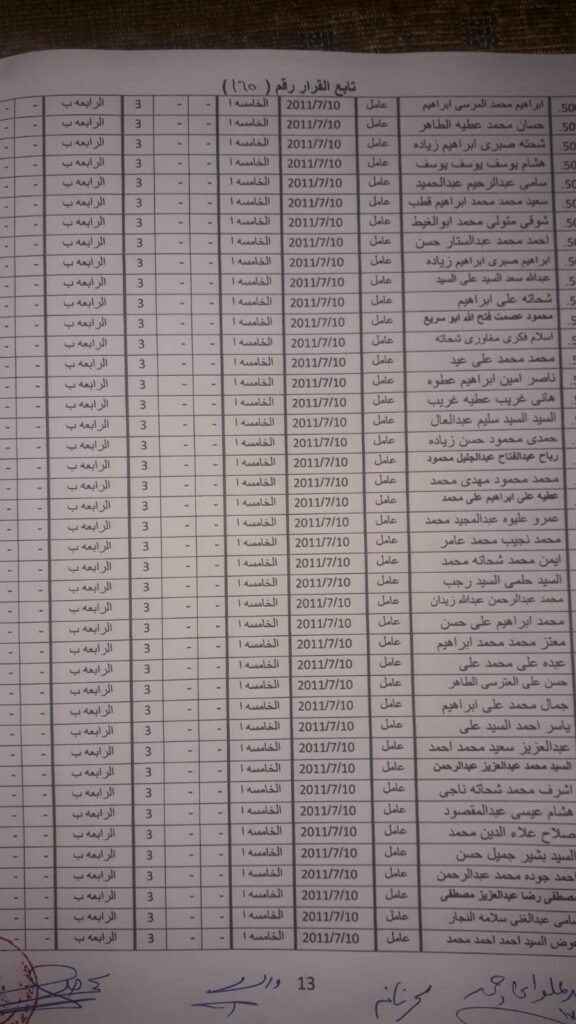 تابع القرار رقم ( ١٦٥ )
ابراهيم محمد المرسى ابراهيم عامل 2011/7/10 الخامسه ا - - 3 الرابعه ب - -
حسان محمد عطيه الطاهر عامل 2011/7/10 الخامسه ا - - 3 الرابعه ب - -
شحته صبرى ابراهيم زياده عامل 2011/7/10 الخامسه ا - - 3 الرابعه ب - -
هشام يوسف يوسف يوسف عامل 2011/7/10 الخامسه ا - - 3 الرابعه ب - -
سامى عبدالرحيم عبدالحميد عامل 2011/7/10 الخامسه ا - - 3 الرابعه ب - -
سعيد محمد محمد ابراهيم قطب عامل 2011/7/10 الخامسه ا - - 3 الرابعه ب - -
شوقى متولى محمد ابوالغيط عامل 2011/7/10 الخامسه ا - - 3 الرابعه ب - -
احمد محمد عبدالستار حسن عامل 2011/7/10 الخامسه ا - - 3 الرابعه ب - -
ابراهيم صبرى ابراهيم زياده عامل 2011/7/10 الخامسه ا - - 3 الرابعه ب - -
عبدالله سعد السيد على السيد عامل 2011/7/10 الخامسه ا - - 3 الرابعه ب - -
شحاته على ابراهيم عامل 2011/7/10 الخامسه ا - - 3 الرابعه ب - -
محمود عصمت فتح الله ابو سريع عامل 2011/7/10 الخامسه ا - - 3 الرابعه ب - -
اسلام فكرى مغاورى شحاته عامل 2011/7/10 الخامسه ا - - 3 الرابعه ب - -
محمد محمد على عيد عامل 2011/7/10 الخامسه ا - - 3 الرابعه ب - -
ناصر امين ابراهيم عطوه عامل 2011/7/10 الخامسه ا - - 3 الرابعه ب - -
هانى غريب عطيه غريب عامل 2011/7/10 الخامسه ا - - 3 الرابعه ب - -
السيد السيد سليم عبدالعال عامل 2011/7/10 الخامسه ا - - 3 الرابعه ب - -
حمدى محمود حسن زياده عامل 2011/7/10 الخامسه ا - - 3 الرابعه ب - -
رباح عبدالفتاح عبدالجليل محمود عامل 2011/7/10 الخامسه ا - - 3 الرابعه ب - -
محمد محمود مهدى محمد عامل 2011/7/10 الخامسه ا - - 3 الرابعه ب - -
عطيه على ابراهيم على محمد عامل 2011/7/10 الخامسه ا - - 3 الرابعه ب - -
عمرو عليوه عبدالمجيد محمد عامل 2011/7/10 الخامسه ا - - 3 الرابعه ب - -
محمد نجيب محمد عامر عامل 2011/7/10 الخامسه ا - - 3 الرابعه ب - -
ايمن محمد شحاته محمد عامل 2011/7/10 الخامسه ا - - 3 الرابعه ب - -
السيد حلمى السيد رجب عامل 2011/7/10 الخامسه ا - - 3 الرابعه ب - -
محمد عبدالرحمن عبدالله زيدان عامل 2011/7/10 الخامسه ا - - 3 الرابعه ب - -
محمد ابراهيم على حسن عامل 2011/7/10 الخامسه ا - - 3 الرابعه ب - -
معتز محمد محمد ابراهيم عامل 2011/7/10 الخامسه ا - - 3 الرابعه ب - -
عبده على محمد على عامل 2011/7/10 الخامسه ا - - 3 الرابعه ب - -
حسن على العترسى الطاهر عامل 2011/7/10 الخامسه ا - - 3 الرابعه ب - -
جمال محمد على ابراهيم عامل 2011/7/10 الخامسه ا - - 3 الرابعه ب - -
ياسر احمد السيد على عامل 2011/7/10 الخامسه ا - - 3 الرابعه ب - -
عبدالعزيز سعيد محمد احمد عامل 2011/7/10 الخامسه ا - - 3 الرابعه ب - -
السيد محمد عبدالعزيز عبدالرحمن عامل 2011/7/10 الخامسه ا - - 3 الرابعه ب - -
اشرف محمد شحاته ناجى عامل 2011/7/10 الخامسه ا - - 3 الرابعه ب - -
هشام عيسى عبدالمقصود عامل 2011/7/10 الخامسه ا - - 3 الرابعه ب - -
صلاح علاء الدين محمد عامل 2011/7/10 الخامسه ا - - 3 الرابعه ب - -
السيد بشير جميل حسن عامل 2011/7/10 الخامسه ا - - 3 الرابعه ب - -
احمد جوده محمد عبدالرحمن عامل 2011/7/10 الخامسه ا - - 3 الرابعه ب - -
مصطفى رضا عبدالعزيز مصطفى عامل 2011/7/10 الخامسه ا - - 3 الرابعه ب - -
سامى عبدالغنى سلامه النجار عامل 2011/7/10 الخامسه ا - - 3 الرابعه ب - -
عوض السيد احمد احمد محمد عامل 2011/7/10 الخامسه ا - - 3 الرابعه ب - -
13